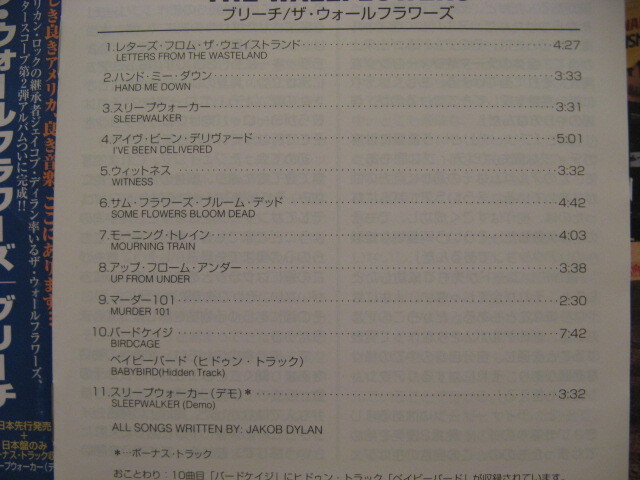 THE WALLFLOWERS
ブリーチ/ザ・ウォールフラワーズ
1.レターズ・フロム・ザ・ウェイストランド 4:27
LETTERS FROM THE WASTELAND
2.ハンド・ミー・ダウン 3:33
HAND ME DOWN
3.スリープウォーカー 3:31
SLEEPWALKER
4.アイヴ・ビーン・デリヴァード 5:01
I'VE BEEN DELIVERED
5.ウィットネス 3:32
WITNESS
6.サム・フラワーズ・ブルーム・デッド 4:42
SOME FLOWERS BLOOM DEAD
7.モーニング・トレイン 4:03
MOURNING TRAIN
8.アップ・フローム・アンダー 3:38
UP FROM UNDER
9.マーダー101 2:30
MURDER 101
10.バードケイジ 7:42
BIRDCAGE
ベイビーバード（ヒドゥン・トラック）
BABYBIRD(Hidden Track)
11.スリープウォーカー(デモ)* 3:32
SLEEPWALKER (Demo)
ALL SONGS WRITTEN BY: JAKOB DYLAN
*…ボーナス・トラック
おことわり：10曲目「バードケイジ」にヒドゥン・トラック「ベイビーバード」が収録されています。
しき良きアメリカ、良き音楽、ここにあります…
リカン・ロックの継承者ジェイコブ・ディラン率いるザ・ウォールフラワーズ、
タースコープ第2弾アルバムついに完成!!
ウォールフラワーズ｜ブリーチ
日本先行発売
+
日本盤のみ
ーナス・トラック収
ープウォーカー(デ